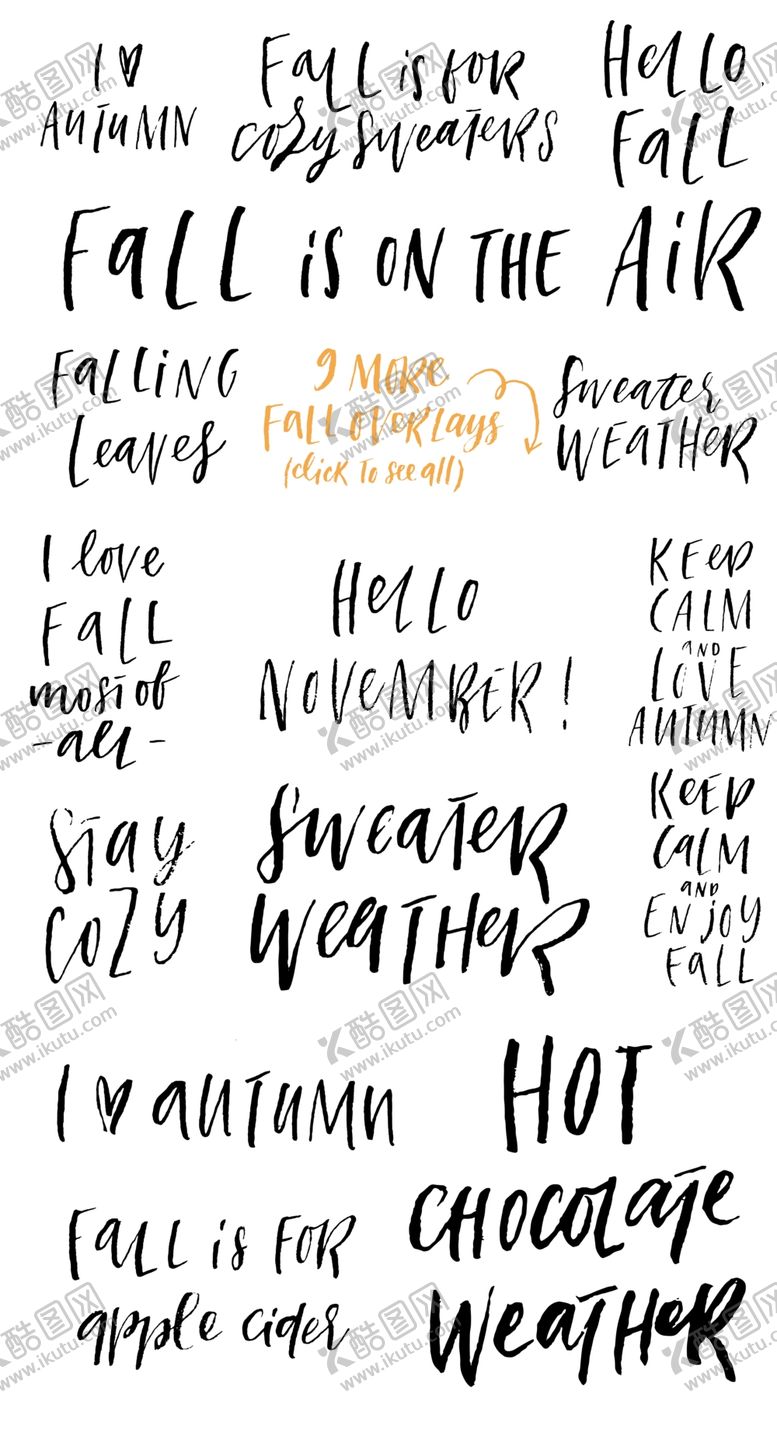 I ♥
AUTUMN
Fall is for
cozy sweaters
Hello
Fall
Fall is on the Air
Falling
Leaves
9 More
Fall overlays
(click to see all)
Sweater
Weather
I love
Fall
most of
-all-
Hello
November!
Keep
Calm
and
Love
Autumn
Stay
Cozy
Sweater
Weather
Keep
Calm
and
Enjoy
Fall
I ♥ autumn
Hot
Chocolate
Weather
Fall is for
apple cider
酷图网
www.ikutu.com